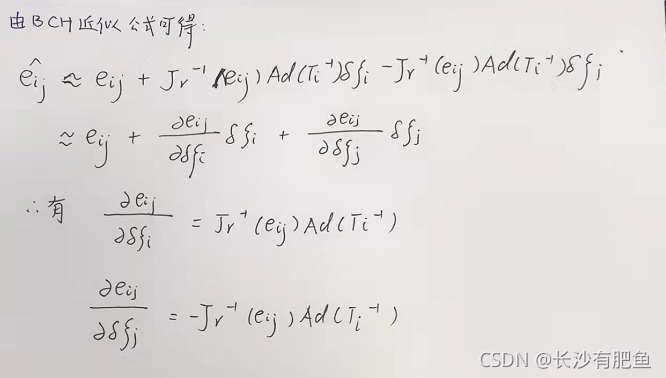 由BCH近似公式可得:
êij ≈ eij + Jr⁻¹(eij)Ad(Ti⁻¹)δξi - Jr⁻¹(eij)Ad(Ti⁻¹)δξj
≈ eij + ∂eij/∂δξi δξi + ∂eij/∂δξj δξj
∴有 ∂eij/∂δξi = Jr⁻¹(eij)Ad(Ti⁻¹)
∂eij/∂δξj = -Jr⁻¹(eij)Ad(Ti⁻¹)
CSDN @长沙有肥鱼